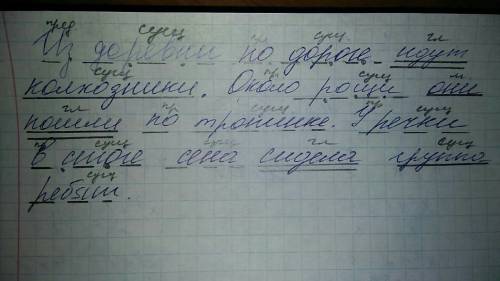 пред сущ пр сущ гл
Из деревни по дороге идут
сущ пр сущ м
колхозники. Около рощи они
гл пр сущ пр сущ
пошли по тропинке. У речки
пр сущ сущ гл сущ
в стоге сена сидела группа
сущ
ребят.